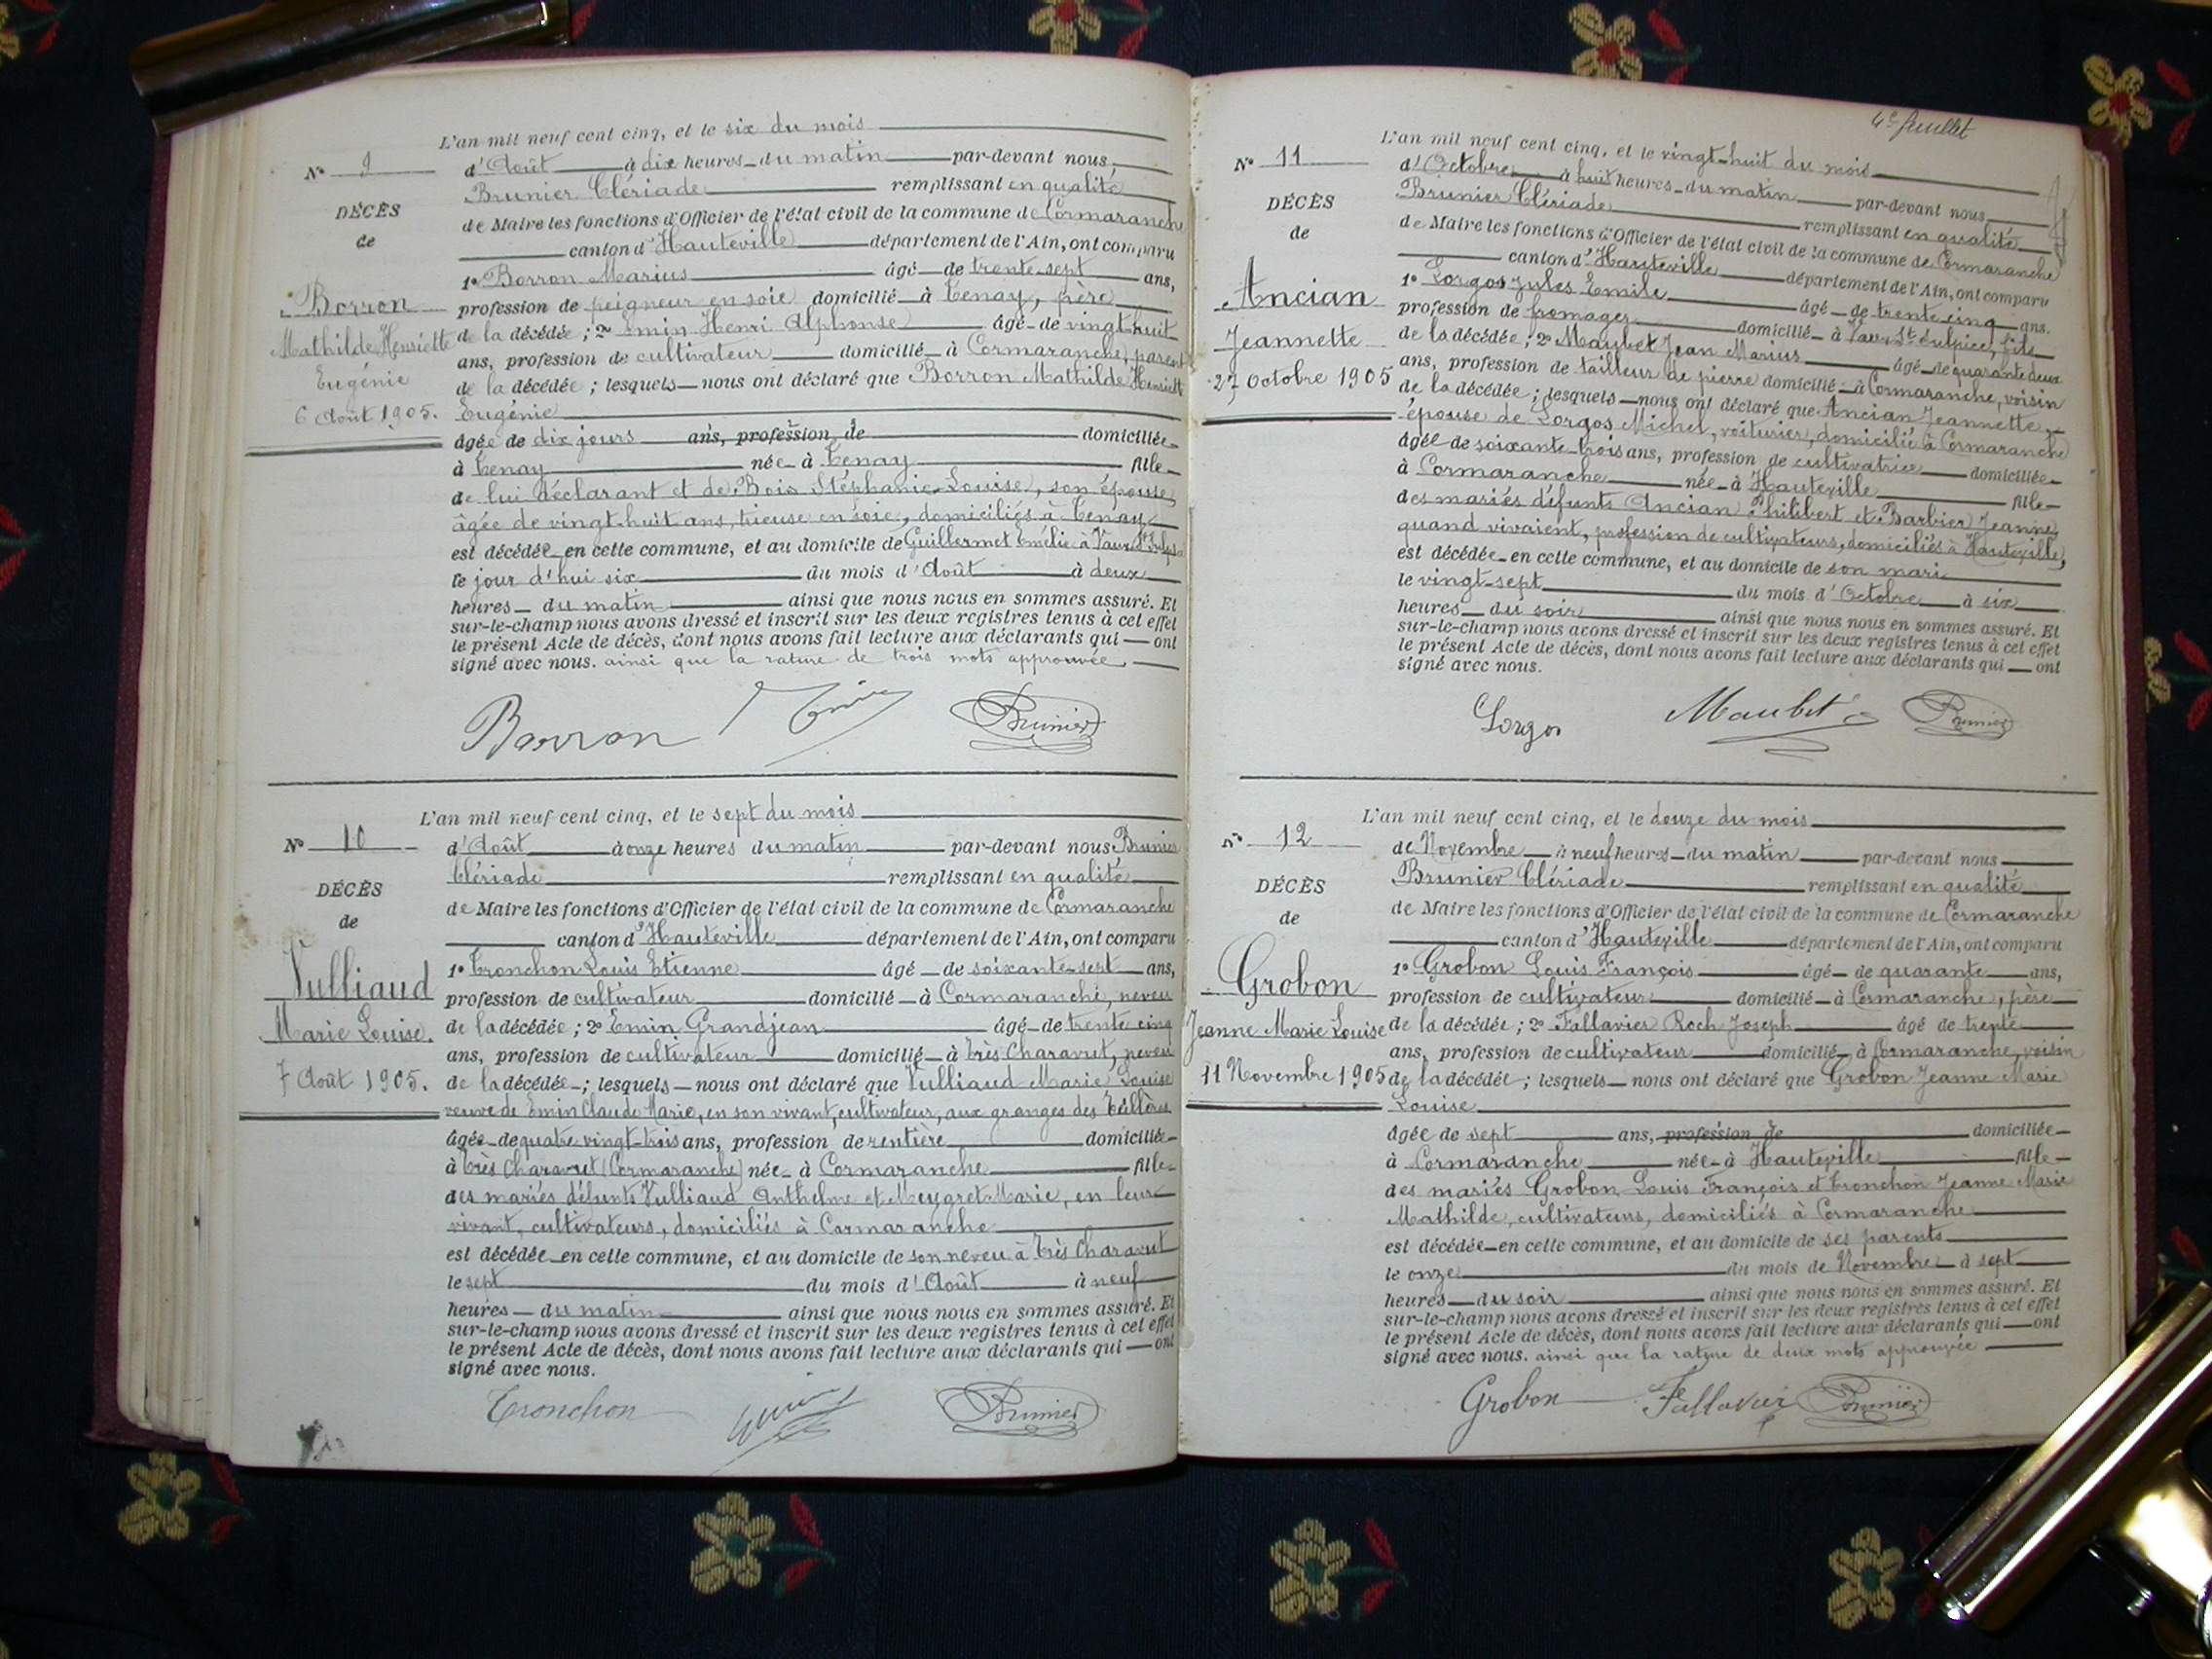 L'an mil neuf cent cinq, et le six du mois
N° 9
d'Août à dix heures du matin par-devant nous
Brunier Clériade remplissant en qualité
DÉCÈS
de Maire les fonctions d'Officier de l'état civil de la commune de Cormaranche
de
canton d'Hauteville département de l'Ain, ont comparu
1° Borron Marius âgé de trente-sept ans,
Borron
profession de peigneur en soie domicilié à Tenay, père
Mathilde Henriette
de la décédée ; 2° Emin Henri Alphonse âgé de vingt-huit
ans, profession de cultivateur domicilié à Cormaranche, parent
Eugénie
de la décédée ; lesquels nous ont déclaré que Borron Mathilde Henriette
6 Août 1905.
Eugénie
âgée de dix jours ans, profession de domiciliée
à Tenay née à Tenay fille
de lui déclarant et de Bois Stéphanie Louise, son épouse,
âgée de vingt-huit ans, tisseuse en soie, domiciliés à Tenay
est décédée en cette commune, et au domicile de Guillermet Emélie à Vaux St Sulpice
le jour d'hui six du mois d'Août à deux
heures du matin ainsi que nous nous en sommes assuré. Et
sur-le-champ nous avons dressé et inscrit sur les deux registres tenus à cet effet
le présent Acte de décès, dont nous avons fait lecture aux déclarants qui ont
signé avec nous. ainsi que la rature de trois mots approuvée
Borron Emin Brunier
L'an mil neuf cent cinq, et le sept du mois
N° 10
d'Août à onze heures du matin par-devant nous Brunier
Clériade remplissant en qualité
DÉCÈS
de Maire les fonctions d'Officier de l'état civil de la commune de Cormaranche
de
canton d'Hauteville département de l'Ain, ont comparu
1° Tronchon Louis Etienne âgé de soixante-sept ans,
Vulliaud
profession de cultivateur domicilié à Cormaranche, neveu
Marie Louise.
de la décédée ; 2° Emin Grandjean âgé de trente cinq
ans, profession de cultivateur domicilié à Très Charavut, neveu
7 Août 1905.
de la décédée ; lesquels nous ont déclaré que Vulliaud Marie Louise
veuve de Emin Claude Marie, en son vivant, cultivateur, aux granges des
âgée de quatre-vingt-trois ans, profession de rentière domiciliée
à Très Charavut (Cormaranche) née à Cormaranche fille
des mariés défunts Vulliaud Anthelme et Meygret Marie, en leur
vivant, cultivateurs, domiciliés à Cormaranche
est décédée en cette commune, et au domicile de son neveu à Très Charavut
le sept du mois d'Août à neuf
heures du matin ainsi que nous nous en sommes assuré. Et
sur-le-champ nous avons dressé et inscrit sur les deux registres tenus à cet effet
le présent Acte de décès, dont nous avons fait lecture aux déclarants qui ont
signé avec nous.
Tronchon Emin Brunier
4e feuillet
L'an mil neuf cent cinq, et le vingt-huit du mois
N° 11
d'Octobre à huit heures du matin par-devant nous
Brunier Clériade remplissant en qualité
DÉCÈS
de Maire les fonctions d'Officier de l'état civil de la commune de Cormaranche
de
canton d'Hauteville département de l'Ain, ont comparu
1° Lorgos Jules Emile âgé de trente cinq ans.
Ancian
profession de fromager domicilié à Vaux St Sulpice, fils
Jeannette
de la décédée ; 2° Maubet Jean Marius âgé de quarante deux
ans, profession de tailleur de pierre domicilié à Cormaranche, voisin
27 Octobre 1905
de la décédée ; lesquels nous ont déclaré que Ancian Jeannette
épouse de Lorgos Michel, voiturier, domicilié à Cormaranche
âgée de soixante-trois ans, profession de cultivatrice domiciliée
à Cormaranche née à Hauteville fille
des mariés défunts Ancian Philibert et Barbier Jeanne,
quand vivaient, profession de cultivateurs, domiciliés à Hauteville,
est décédée en cette commune, et au domicile de son mari
le vingt-sept du mois d'Octobre à six
heures du soir ainsi que nous nous en sommes assuré. Et
sur-le-champ nous avons dressé et inscrit sur les deux registres tenus à cet effet
le présent Acte de décès, dont nous avons fait lecture aux déclarants qui ont
signé avec nous.
Lorgos Maubet Brunier
L'an mil neuf cent cinq, et le douze du mois
N° 12
de Novembre à neuf heures du matin par-devant nous
Brunier Clériade remplissant en qualité
DÉCÈS
de Maire les fonctions d'Officier de l'état civil de la commune de Cormaranche
de
canton d'Hauteville département de l'Ain, ont comparu
1° Grobon Louis François âgé de quarante ans,
Grobon
profession de cultivateur domicilié à Cormaranche, père
Jeanne Marie Louise
de la décédée ; 2° Fallavier Roch Joseph âgé de trente
ans, profession de cultivateur domicilié à Cormaranche, voisin
11 Novembre 1905
de la décédée ; lesquels nous ont déclaré que Grobon Jeanne Marie
Louise
âgée de sept ans, profession de domiciliée
à Cormaranche née à Hauteville fille
des mariés Grobon Louis François et Tronchon Jeanne Marie
Mathilde, cultivateurs, domiciliés à Cormaranche
est décédée en cette commune, et au domicile de ses parents
le onze du mois de Novembre à sept
heures du soir ainsi que nous nous en sommes assuré. Et
sur-le-champ nous avons dressé et inscrit sur les deux registres tenus à cet effet
le présent Acte de décès, dont nous avons fait lecture aux déclarants qui ont
signé avec nous. ainsi que la rature de deux mots approuvée
Grobon Fallavier Brunier